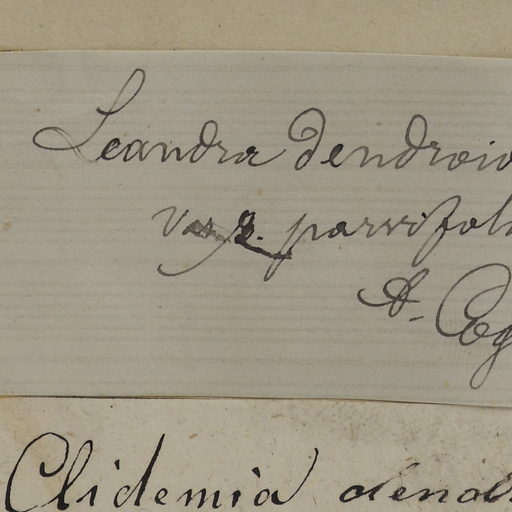 Leandra dendroid
var. β. parvifoli
A. Cog
Clidemia dend